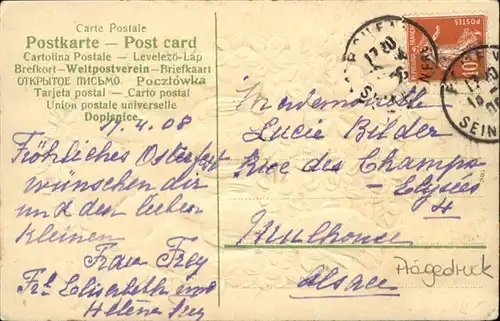 Carte Postale
Postkarte – Post card
Cartolina Postale – Levelező-Lap
Brefkort – Weltpostverein – Briefkaart
ОТКРЫТОЕ ПИСЬМО – Pocztówka
Tarjeta postal – Carto postal
Union postale universelle
Dopisnice
17.4.08
Fröhliches Osterfest
wünschen dir
und den lieben
Kleinen
Frau Frey
Frl Elisabeth und
Helene Frey
POSTES
10
SEINE
Mademoiselle
Lucie Bilder
Rue des Champs
– Elysées
4
Mulhouse
Alsace
Prägedruck